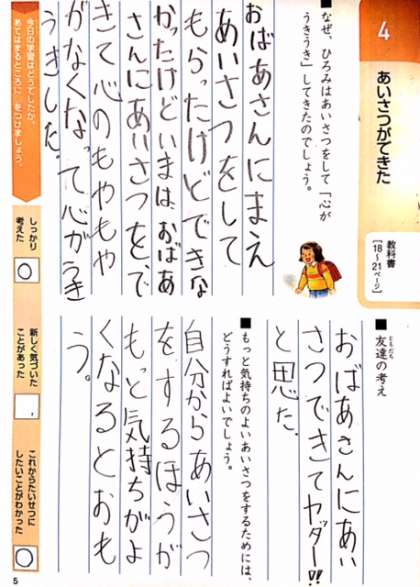 4
あいさつができた
教科書
[18～21ページ]
■なぜ、ひろみはあいさつをして「心が
うきうき」してきたのでしょう。
おばあさんにまえ
あいさつをして
もらったけどできな
かったけどいまは、おばあ
さんにあいさつをで
きて心のもやもや
がなくなって心がうき
うきした。
■友達の考え
ともだち
おばあさんにあい
さつできてヤッター!!
と思た。
■もっと気持ちのよいあいさつをするためには、
どうすればよいでしょう。
自分からあいさつ
をするほうが
もっと気持ちがよ
くなるとおも
う。
今日の学習はどうでしたか。
あてはまるところに○をつけましょう。
しっかり
考えた
○
新しく気づいた
ことがあった
これからたいせつに
したいことがわかった
○
5